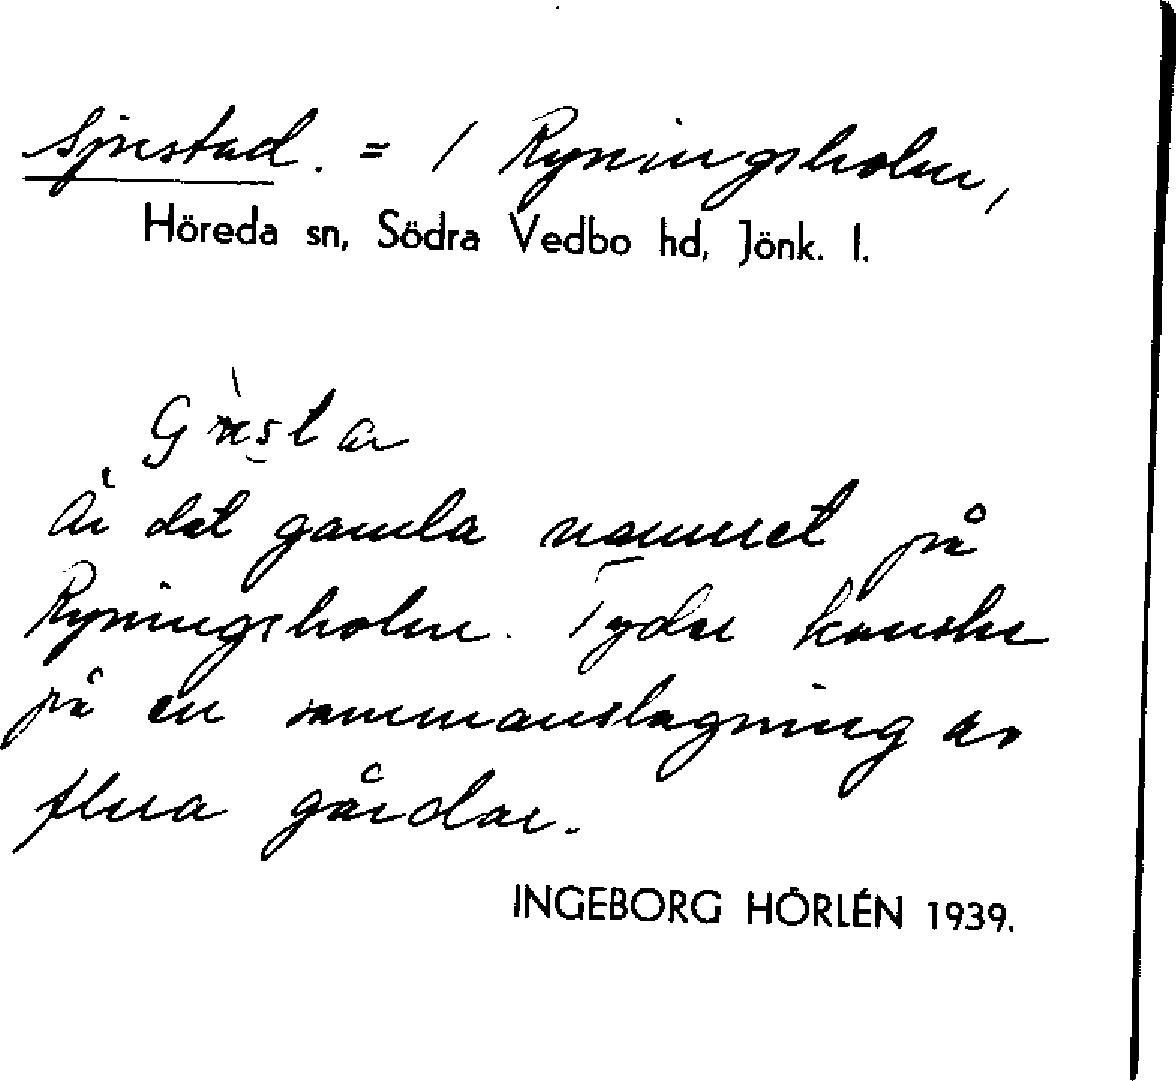 = / Ryningsholm,
Höreda sn, Södra Vedbo hd, Jönk. l.
Är det gamla namnet på
Ryningsholm. Tyder kanske
på en sammanslagning av
flera gårdar.
INGEBORG HÖRLÉN 1939.